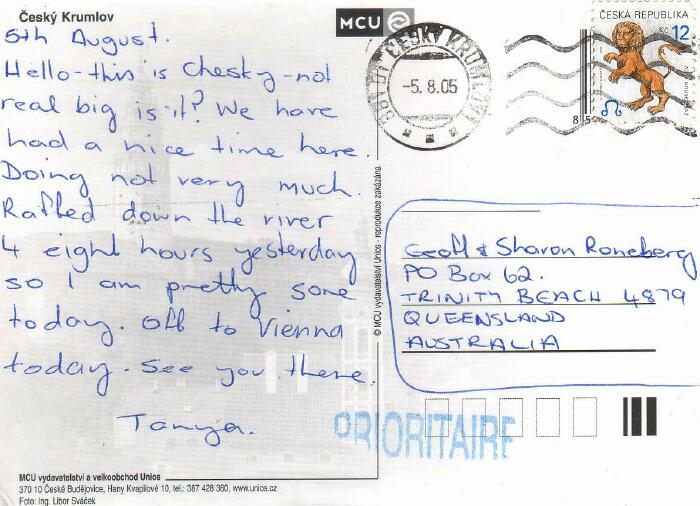 Český Krumlov
MCU
5th August.
Hello-this is Chesky-not
real big is it? We have
had a nice time here.
Doing not very much.
Rafted down the river
4 eight hours yesterday
so I am pretty sore
today. Off to Vienna
today. See you there.
Tanya.
MCU vydavatelství a velkoobchod Unios
370 10 České Budějovice, Hany Kvapilové 10, tel.: 387 428 360, www.unios.cz
Foto: Ing. Libor Sváček
© MCU vydavatelství Unios - reprodukce zakázána
ČESKÝ KRUMLOV
-5.8.05
ČESKÁ REPUBLIKA
12 Kč
Geoff & Sharon Roneberg
PO Box 62.
TRINITY BEACH 4879
QUEENSLAND
AUSTRALIA
PRIORITAIRE